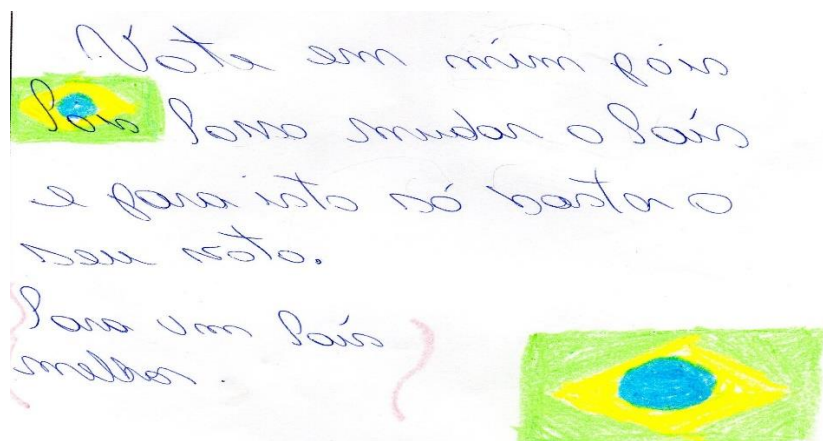 Vote em mim pois
Pois Posso mudar o País
e para isto só bastar o
seu voto.
Para um País
melhor.